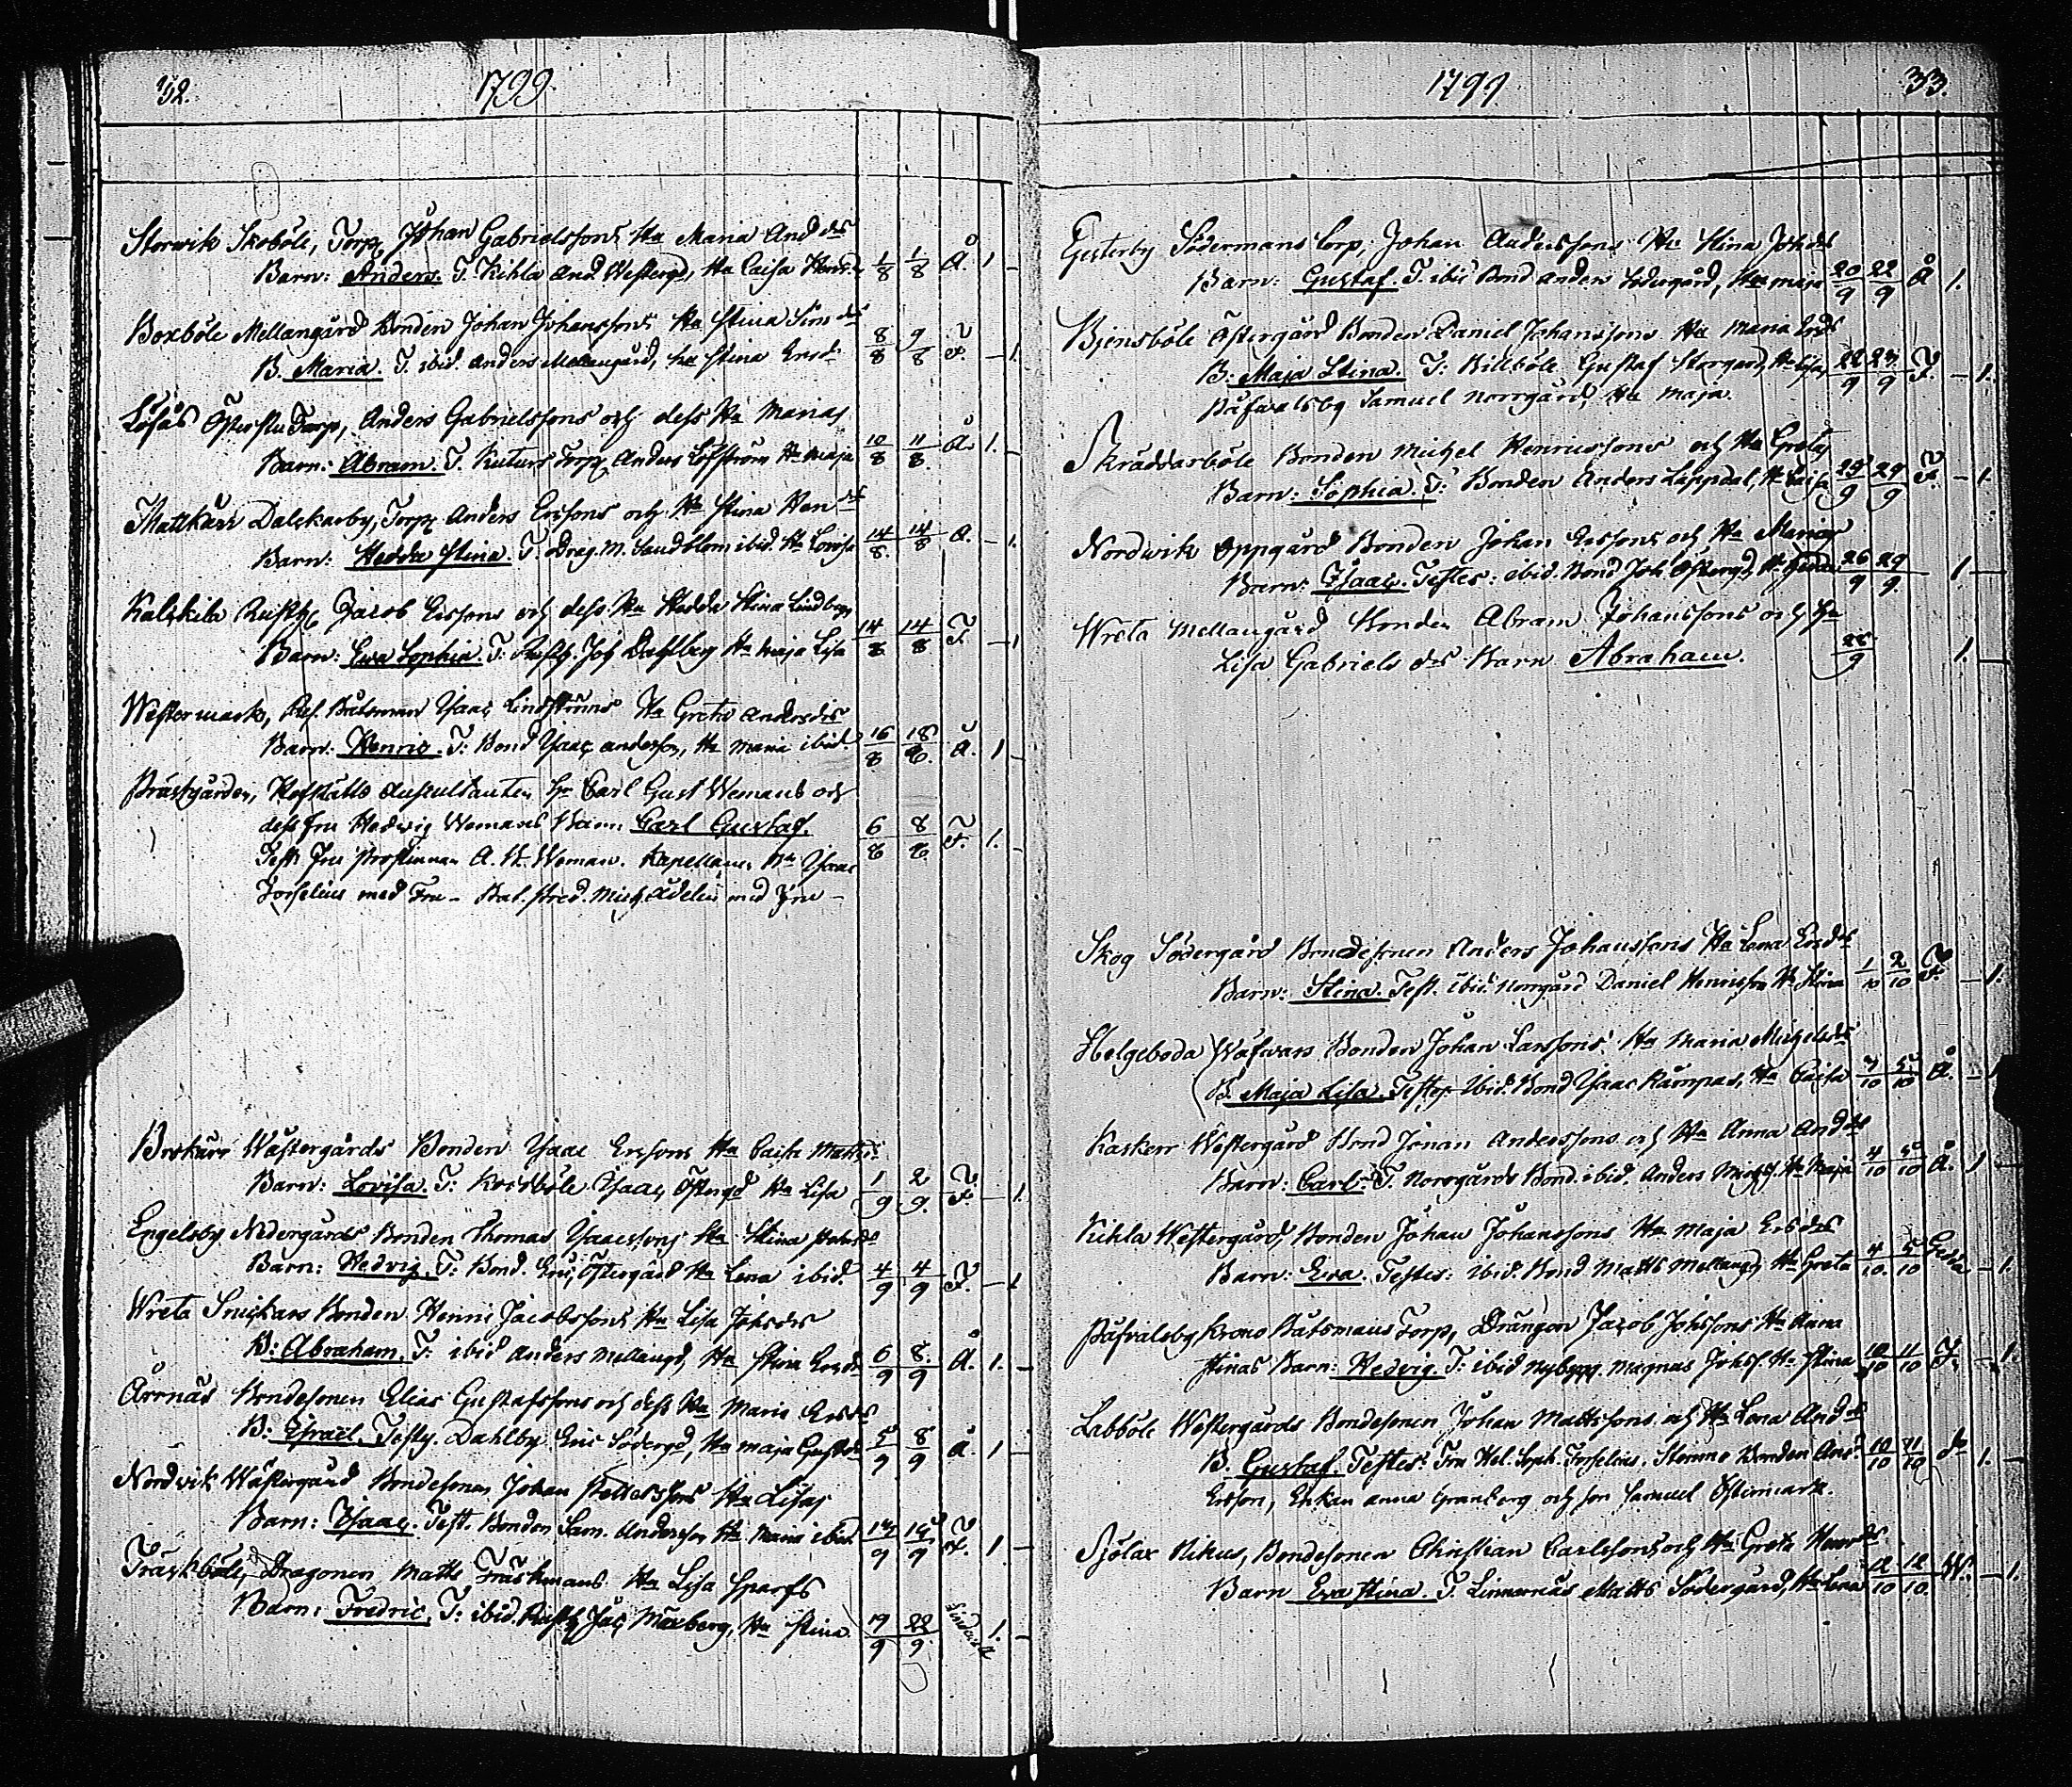 32.
1799.
Storwik Skoböle, Torp. Johan Gabrielssons Hu Maria And ds
Barn: Anders. T. Kihla And. Westergd, Hu Caisa Henrsd.
1/8 1/8 Å. 1 –
Boxböle Mellangård Bonden Johan Johanssons Hu Stina Sims ds
B. Maria. T. ibid. Anders Mellangård, hu Stina Ersd.
8/8 9/8 F. – 1.
Löfås Torp, Anders Gabrielssons och dess Hu Marias
Barn: Abram. T. Torp. Anders Löfström Hu Maja
10/8 11/8. Å. 1. –
Mattkärr Dalkarby, Torp. Anders Ersons och Hu Stina Hen ds
Barn: Hedda Stina. T. Drag. M. Sandblom ibid. Hu Lovisa
14/8. 14/8 Å. – 1.
Kalkila Jacob Ersons och dess Hu Hedda Stina Lindbergs
Barn: Ewa Sophia. T. Joh Dahlberg Hu Maja Lisa
14/8 14/8 F – 1
Westermark, Ref. Båtsman Isaac Lindströms Hu Greta Andersds
Barn: Henric. T: Bond Isaac Anderson, Hu Maria ibid.
16/8 18/8. Å. 1 –
Prästgården, Hofrätts Auscultanten Hr Carl Gust Wemans och
dess fru Hedwig Wemans Barn Carl Gustaf.
6/8 8/8. F. 1. –
Test. Fru Prostinnan A. H. Weman. Kapellanen Hr Isaac
Forselius med Fru – Bat. Pred. Mich. Adelin med Fru –
Brokärr Wästergårds Bonden Isaac Ersons Hu Caisa Mattsd.
Barn: Lovisa. T: Isaac Östergd Hu Lisa
1/9 2/9. F. – 1.
Engelsby Nedergårds Bonden Thomas Isaacssons Hu Stina
Barn: Hedvig. T: Bond. Eric Östergård Hu Lena ibid.
4/9 4/9 F. – 1
Wreta Snickars Bonden Henric Jacobssons Hu Lisa Johsds
B: Abraham. T: ibid Anders Mellangd, Hu Stina Ersds
6/9 8./9 Å. 1. –
Arrnäs Bondesonen Elias Gustafssons och dess Hu Maria Ersds
B: Efraël. Testes. Dahlby Eric Södergd, Hu Maja Gustds
5/9 8/9 Å. 1 –
Nordvik Wästergård Bondesonen Johan Hu Lisas
Barn: Isaac. Test. Bonden Sam. Anderson Hu Maria ibid.
14/9 15/9 F. 1 –
Träskböle, Dragonen Matts Träskmans Hu Lisa Sparfs
Barn: Fredric. T: ibid. Moxberg, Hu Stina
19/9 22/9. 1. –
1799
33.
Gesterby Södermans Torp, Johan Anderssons Hu Stina Johds
Barn: Gustaf. T. ibid Bond Anders Södergård, Hu Maja
20/9 22/9 Å 1.
Bjensböle Östergård Bonden Daniel Johanssons Hu Maria Ersds
B: Maja Stina. T: Billböle Gustaf Storgård, Hu Lisa,
22/9 23/9 F. – 1.
Påfwalsby Samuel Norrgård, Hu Maja
Skräddarböle Bonden Michel Henricssons och Hu Gretas
Barn: Sophia. T: Bonden Anders Lappdal, Hu Caisa
29/9 29/9 F. – 1.
Nordwik Oppgård Bonden Johan Ersons och Hu Marias
Barn: Isaac. Testes: ibid. Bond Joh. Östergd, Hu
26/9 29/9. 1 –
Wreta Mellangård Bonden Abram Johanssons och Hu
Lisa Gabriels ds Barn Abraham.
28/9 1. –
Skog Södergård Bondesonen Anders Johanssons Hu Lena Ersds
Barn: Stina. Test. ibid. Norrgård Daniel Henricsson Hu Stina
1/10 2/10 F. – 1.
Helgeboda Wäfwars Bonden Johan Larssons Hu Maria Michelsds
B. Maja Lisa. Testes. ibid. Bond Isaac Kämpas, Hu Caisa
3/10 5/10 Å. – 1
Kaskerr Westergård Bond Johan Anderssons och Hu Anna And ds
Barn: Carl. T. Norrgårds Bond. ibid. Anders Hu Maja
4/10 5/10 Å. 1 –
Kihla Westergård, Bonden Johan Johanssons Hu Maja Ersds
Barn: Eva. Testes: ibid. Bond Matts Mellangd, Hu Greta
4/10. 5/10 – 1.
Påfvalsby Krono Båtsmans Torp, Drängen Jacob Johssons Hu Anna
Stinas Barn: Hedvig. T: ibid Nybygg. Magnus Johss. Hu Stina
10/10 11/10 F. – 1.
Labböle Westergårds Bondesonen Johan Mattssons och Hu Lena And ds
B. Gustaf. Testes: Fru Hel. Soph. Forselius. Stormo Bonden And.
10/10 11/10 do 1. –
Ersson, Enkan Anna Granberg och son Samuel Östermark.
Sjölax Nikus, Bondesonen Christian Carlssons och Hu Greta Henr ds
Barn Ewa Stina. T. Linnarnäs Matts Södergård, Hu Lena
12/10 12/10. W. – 1.